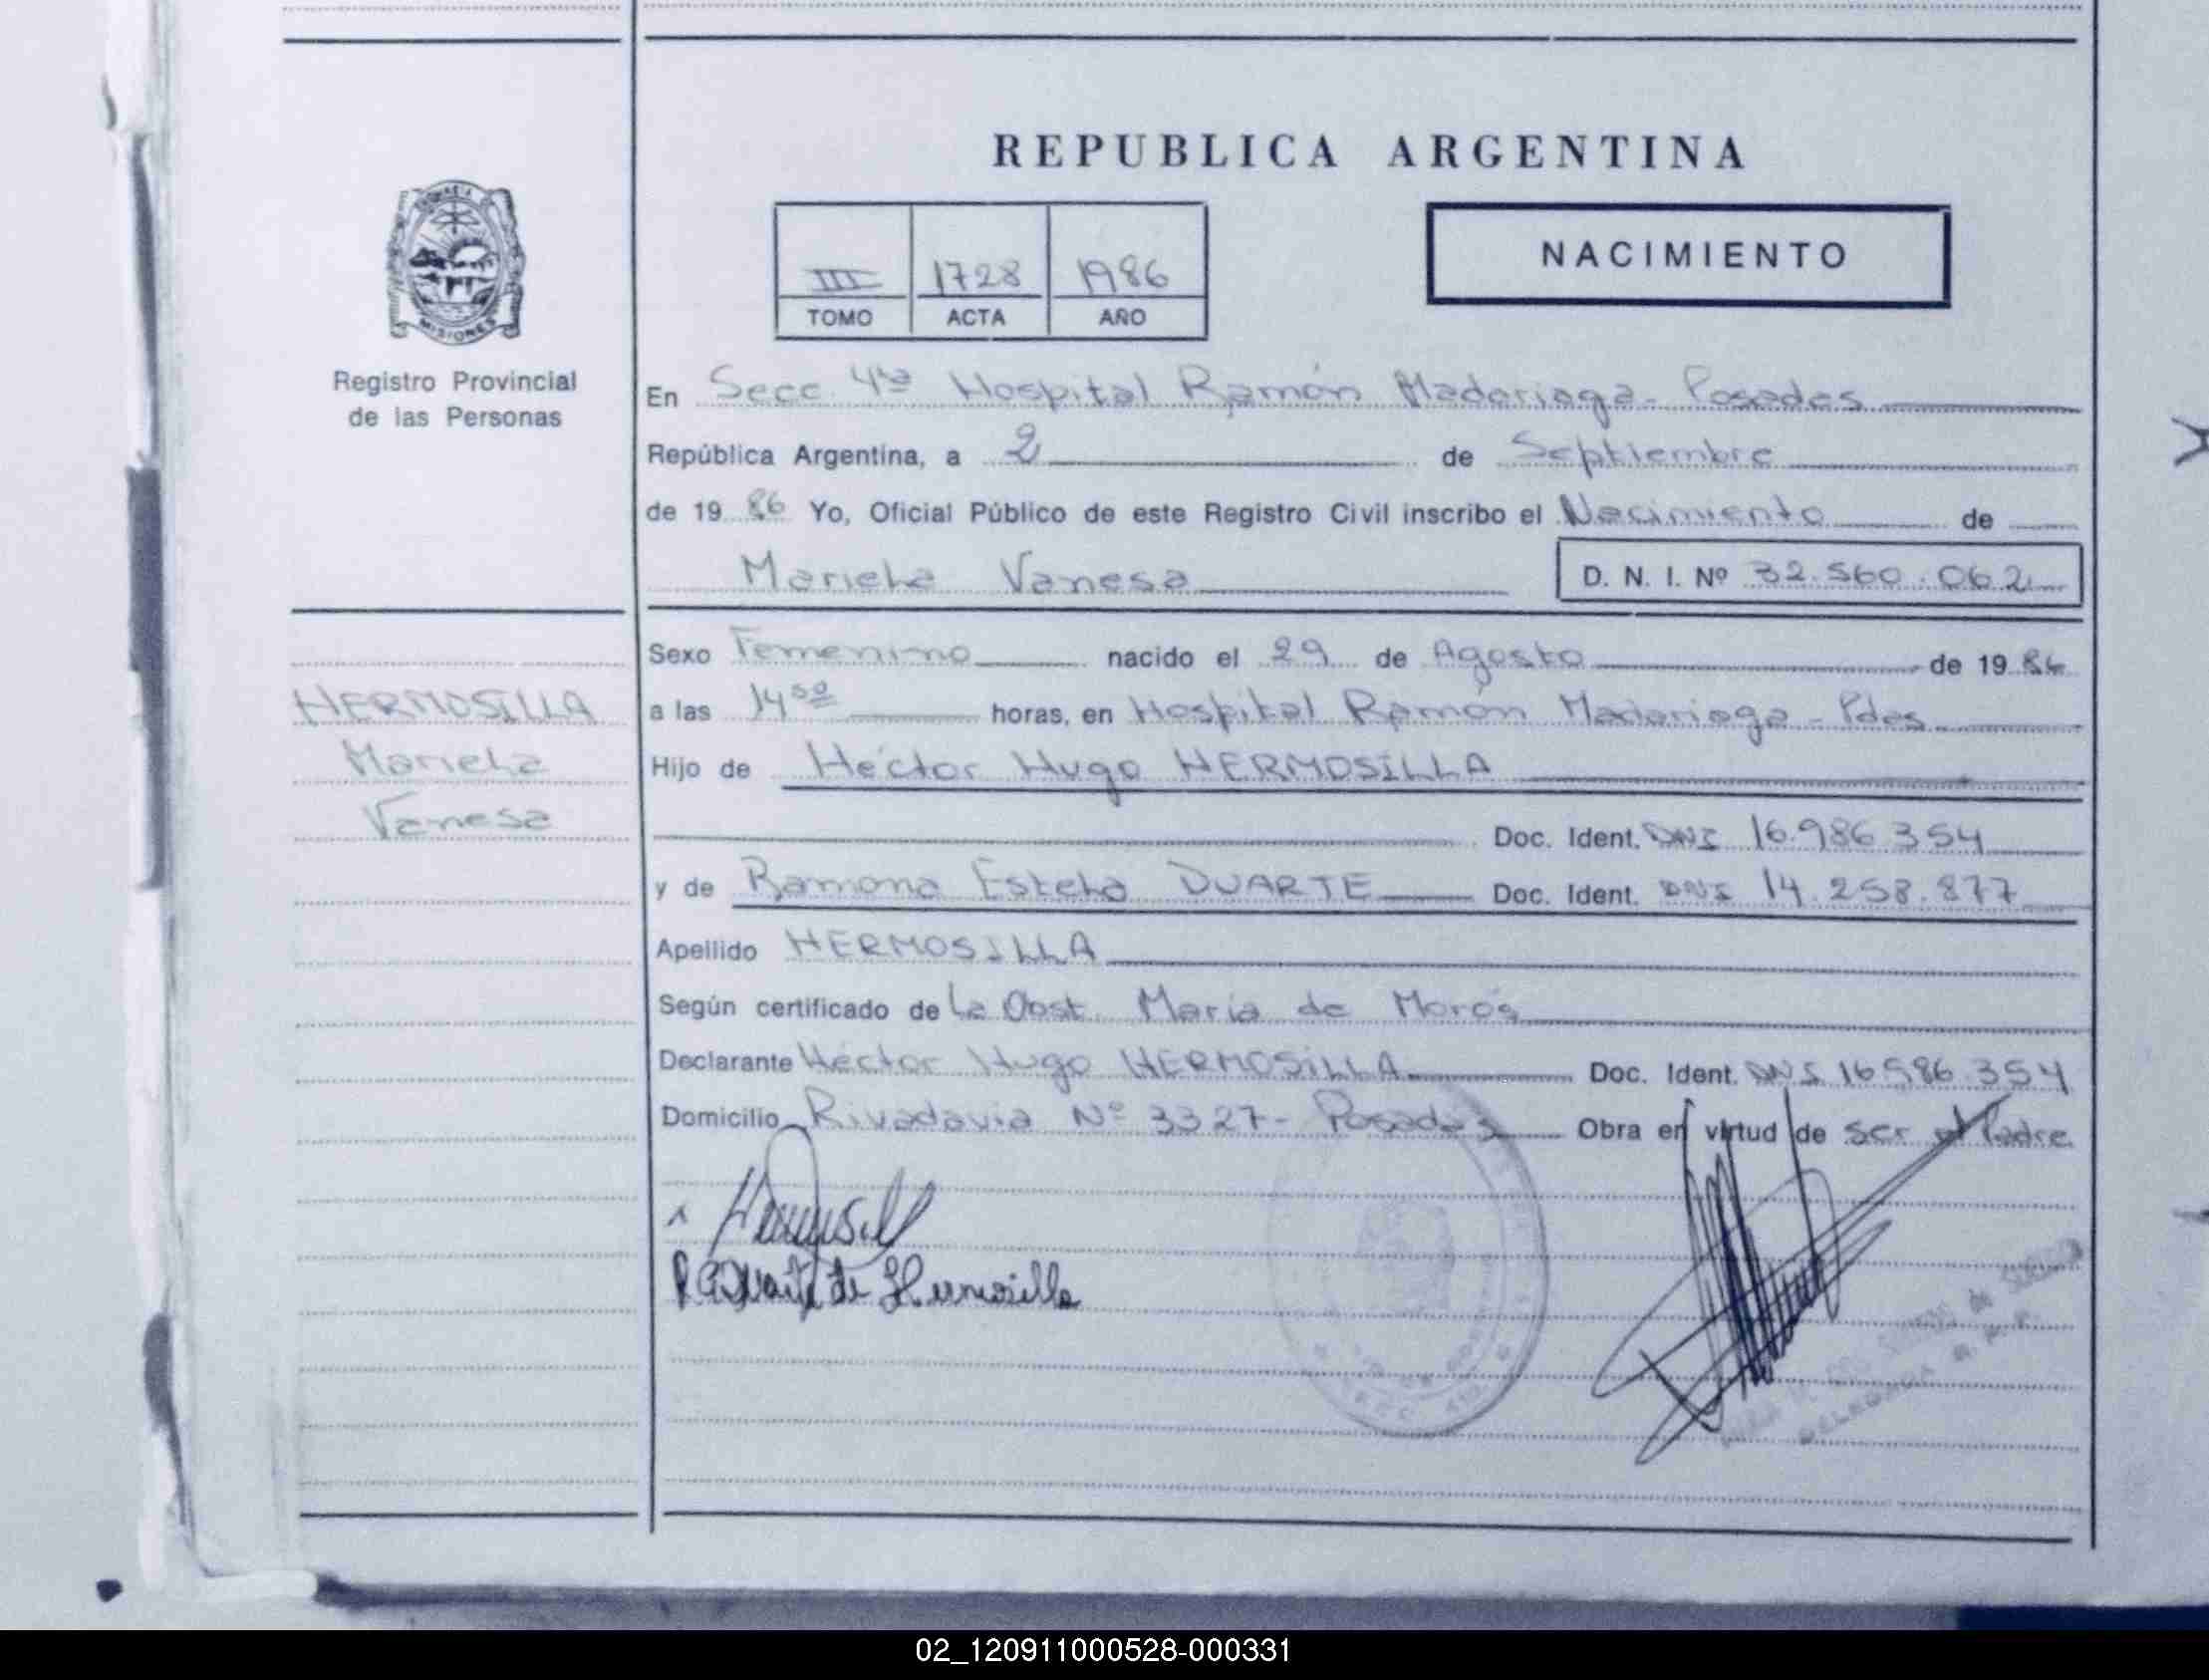 REPUBLICA ARGENTINA
III 1728 1986
TOMO ACTA AÑO
NACIMIENTO
MISIONES
Registro Provincial
de las Personas
En Secc. 4ta Hospital Ramón Madariaga - Posadas
República Argentina, a 2 de Septiembre
de 19 86 Yo, Oficial Público de este Registro Civil inscribo el Nacimiento de
Mariela Vanesa D. N. I. Nº 32.560.062
Sexo Femenino nacido el 29 de Agosto de 19 86
HERMOSILLA
Mariela
Vanesa
a las 14 50 horas, en Hospital Ramón Madariaga - Pdas
Hijo de Héctor Hugo HERMOSILLA
Doc. Ident. DNI 16.986.354
y de Ramona Estela DUARTE Doc. Ident. DNI 14.258.877
Apellido HERMOSILLA
Según certificado de La Obst. María de Moros
Declarante Héctor Hugo HERMOSILLA Doc. Ident. DNI 16 986 354
Domicilio Rivadavia Nº 3327 - Posadas Obra en virtud de ser el Padre
de Hermosilla
DELEGADA R. P. P.
02_120911000528-000331